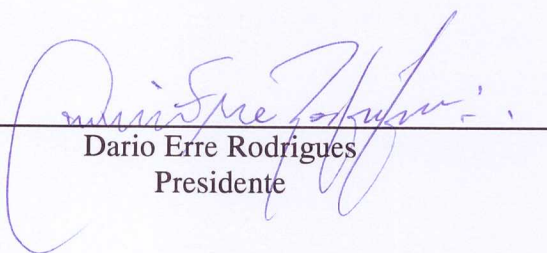 Dario Erre Rodrigues
Presidente